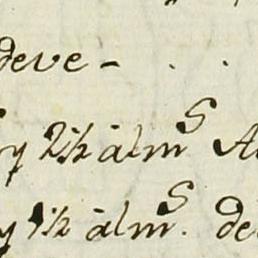 deve -
y 2½ àlmˢ A
y 1½ àlmˢ. de